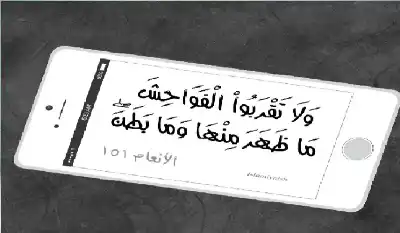 وَلَا تَقْرَبُوا۟ الْفَوَاحِشَ
مَا ظَهَرَ مِنْهَا وَمَا بَطَنَ ۖ
الأنعام ١٥١